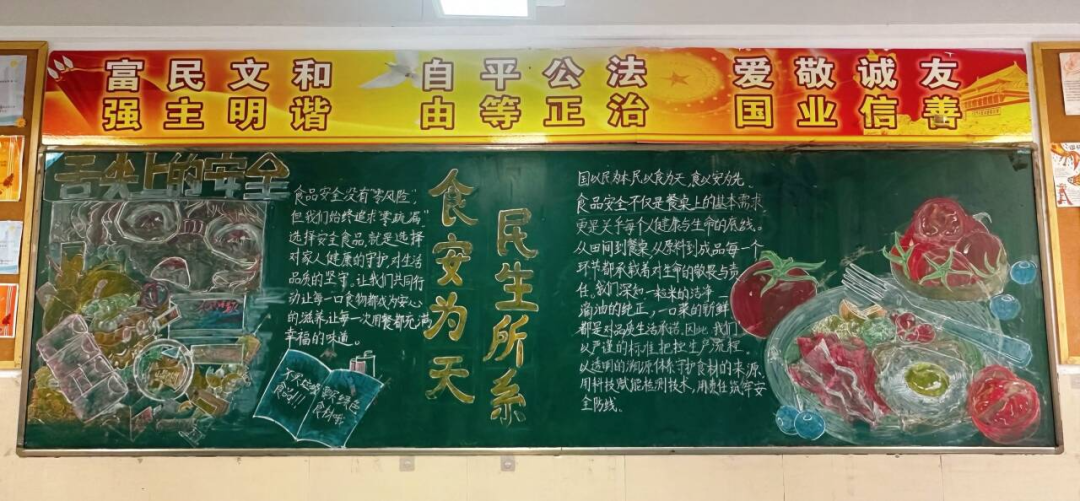 富民文和 自平公法 爱敬诚友
强主明谐 由等正治 国业信善
舌尖上的安全
食品安全没有"零风险",
但我们始终追求"零疏漏"
选择安全食品,就是选择
对家人健康的守护,对生活
品质的坚守,让我们共同行
动让每一口食物都成为安心
的滋养,让每一次用餐都充满
幸福的味道。
食品!!!
食安为天
民生所系
国以民为本,民以食为天,食以安为先。
食品安全不仅是餐桌上的基本需求
更是关乎每个人健康与生命的底线。
从田间到餐桌,从原料到成品每一个
环节都承载着对生命的敬畏与责
任。我们深知一粒米的洁净
滴油的纯正,一口菜的新鲜
都是对品质生活承诺,因此,我们
以严谨的标准把控生产流程
以透明的溯源体系守护食材的来源,
用科技赋能检测技术,用责任筑牢安
全防线。